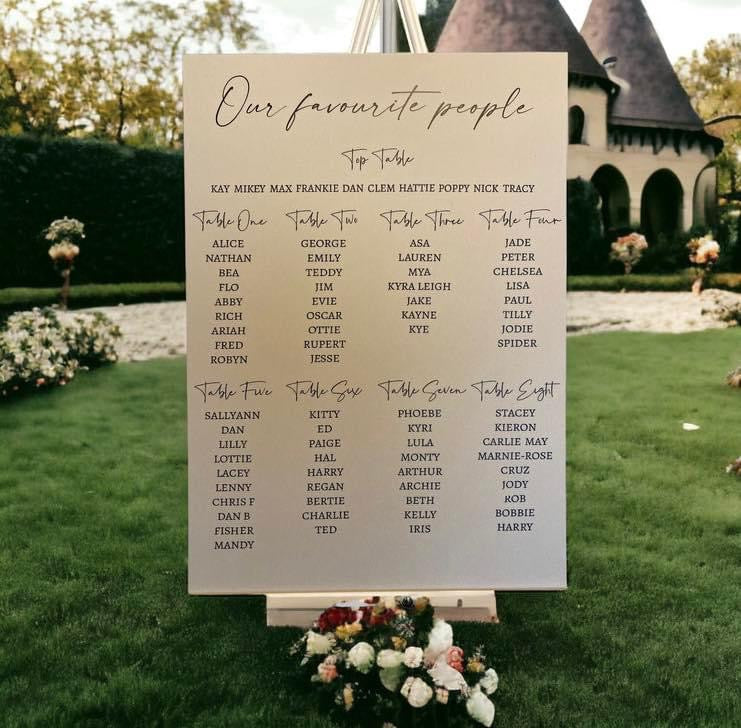 Our favourite people
Top Table
KAY MIKEY MAX FRANKIE DAN CLEM HATTIE POPPY NICK TRACY
Table One
ALICE
NATHAN
BEA
FLO
ABBY
RICH
ARIAH
FRED
ROBYN
Table Two
GEORGE
EMILY
TEDDY
JIM
EVIE
OSCAR
OTTIE
RUPERT
JESSE
Table Three
ASA
LAUREN
MYA
KYRA LEIGH
JAKE
KAYNE
KYE
Table Four
JADE
PETER
CHELSEA
LISA
PAUL
TILLY
JODIE
SPIDER
Table Five
SALLYANN
DAN
LILLY
LOTTIE
LACEY
LENNY
CHRIS F
DAN B
FISHER
MANDY
Table Six
KITTY
ED
PAIGE
HAL
HARRY
REGAN
BERTIE
CHARLIE
TED
Table Seven
PHOEBE
KYRI
LULA
MONTY
ARTHUR
ARCHIE
BETH
KELLY
IRIS
Table Eight
STACEY
KIERON
CARLIE MAY
MARNIE-ROSE
CRUZ
JODY
ROB
BOBBIE
HARRY